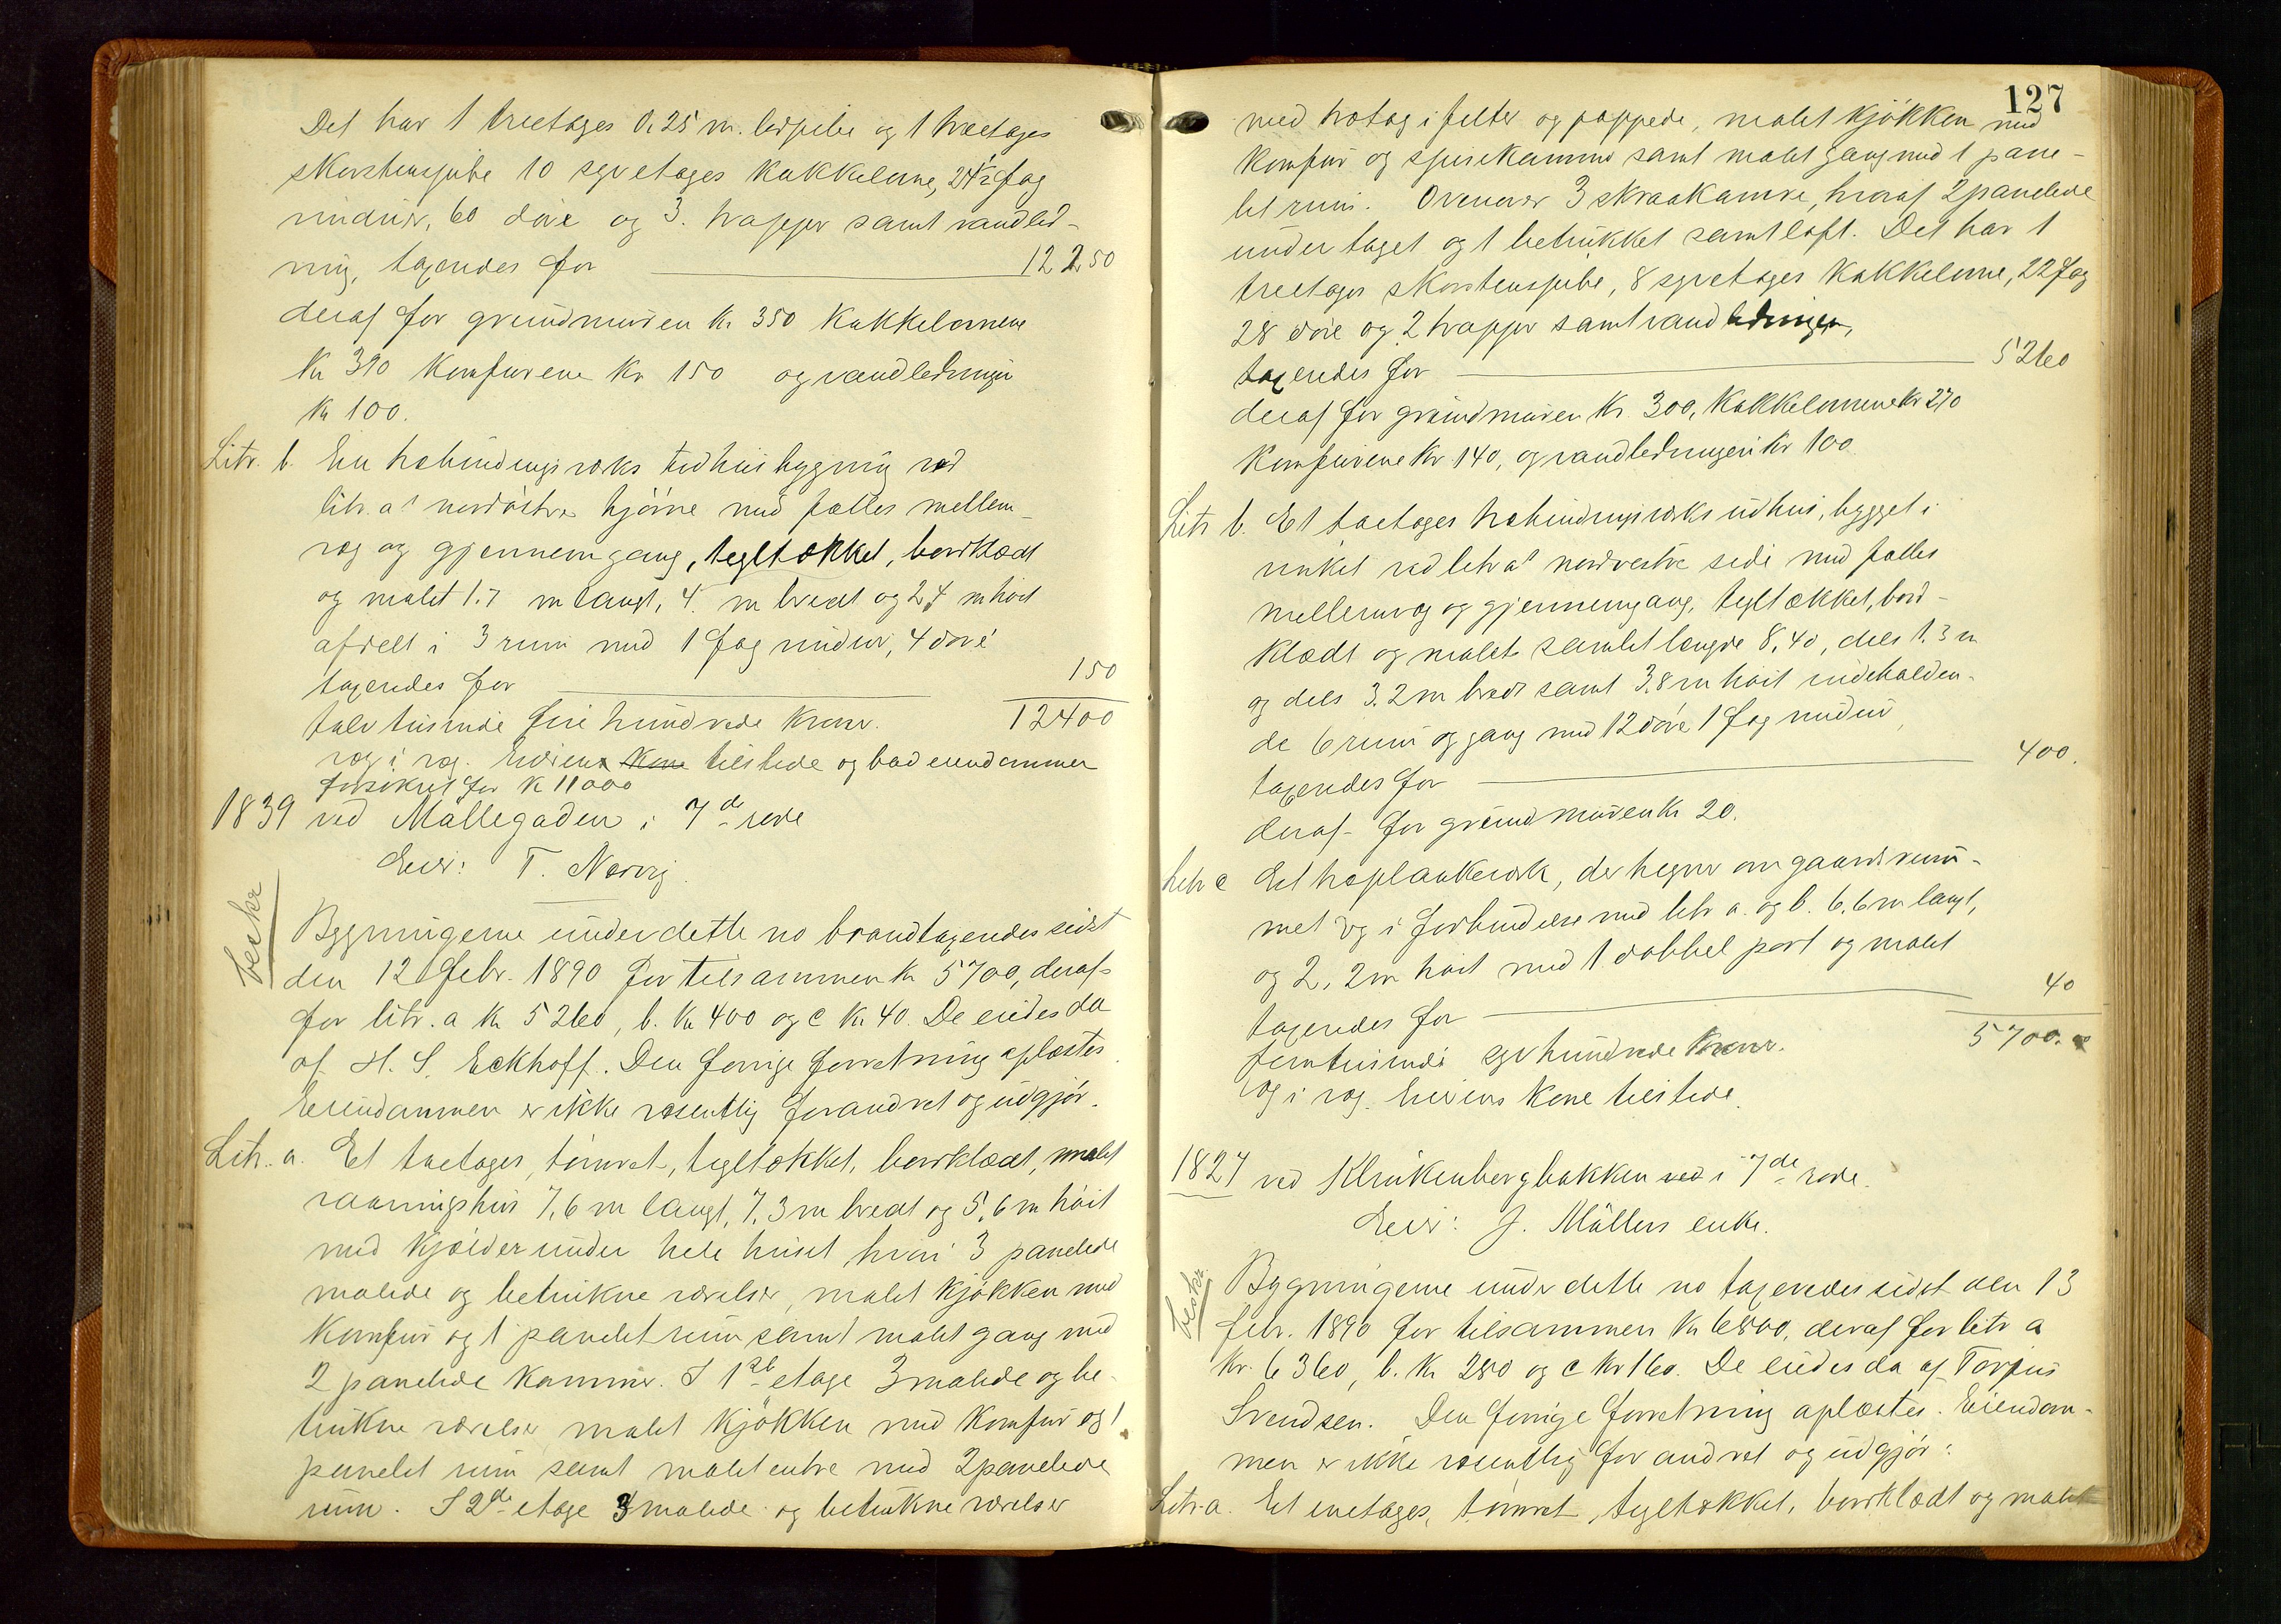 Det har 1 treetages 0,25 m. lerpibe og 1 træetages
skorstenspibe 10 syvetages kakkelovne, 24½ fag
vinduer, 60 døre og 3. trapper samt vandled-
ning, taxeredes for 12250
deraf for grundmuren kr 350 kakkelovnene
kr 390 komfurene kr 150 og vandledningen
kr 100.
Litr. b. En trebindingsværks udhusbygning ved
litr. a's nordöstre hjörne med fælles mellem-
væg og gjennemgang, tegltækket, bordklædt
og malet 1.7 m langt, 4. m bredt og 2,4 m høit
afdelt i 3 rum med 1 fag vinduer, 4 døre
taxeredes for 150
tolv tusinde fire hundrede kroner. 12400
væg i væg. Eieren tilstede og bad eiendommen
forsikret for k 11000
1839 ved Möllegaden i 7de rode
Eier: T. Norvig.
beskr
Bygningerne under dette no brandtaxeredes sidst
den 12 febr. 1890 for tilsammen kr 5700, deraf
for litr. a kr 5260, b. kr 400 og c kr. 40. De eiedes da
af H. S. Eckhoff. Den forrige forretning oplæstes.
Eiendommen er ikke væsentlig forandret og udgjør.
Litr. a. Et toetages, tømret, tegltækket, bordklædt, malet
vaaningshus 7,6 m langt, 7,3 m bredt og 5,6 m høit
med kjælder under hele huset, hvori 3 panelede
malede og betrukne værelser, malet kjøkken med
komfur og 1 panelet rum samt malet gang med
2 panelede kammer. I 1ste etage 3 malede og be-
trukne værelser malet kjøkken med komfur og 1
panelet rum samt malet entre med 2 panelede
rum. I 2de etage 3 malede og betrukne værelser
127
med træ tag i felter og pappede, malet kjøkken med
komfur og spisekammer samt malet gang med 1 pane-
let rum. Ovenover 3 skraakamre, hvoraf 2 panelede
under taget og 1 betrukket samt loft. Det har 1
treetages skorstenspibe, 8 syvetages kakkelovne, 22 fag
28 døre og 2 trapper samt vandledningen,
taxeredes for 5260
deraf for grundmuren kr. 300, kakkelovnene kr 270
komfurene kr 140, og vandledningen kr 100
Litr b. Et toetages trebindingsværks udhus, bygget i
vinkel ved litr a's nordvestre side med fælles
mellemvæg og gjennemgang, tegltækket, bord-
klædt og malet samlet længde 8,40, dels 1,3 m
og dels 3,2 m bredt samt 3,8 m høit indeholden-
de 6 rum og gang med 12 døre 1 fag vinduer,
taxeredes for 400.
deraf for grundmuren kr 20.
Litr c Et træplankeværk, der hegner om gaardsrum-
met og i forbindelse med litr a. og b. 6,6 m langt,
og 2,2 m høit med 1 dobbel port og malet
taxeredes for 40
femtusinde syvhundrede kroner. 5700.
væg i væg. Eierens kone tilstede.
1827 ved Klinkenbergbakken ved i 7de rode.
Eier: J. Möllers enke.
beskr.
Bygningerne under dette no taxeredes sidst den 13
febr. 1890 for tilsammen kr 6800, deraf for litr a
kr. 6360, b. kr 280 og c kr 160. De eiedes da af Torjus
Svendsen. Den forrige forretning oplæstes. Eiendom-
men er ikke væsentlig forandret og udgjør:
Litr. a. Et enetages, tømret, tegltækket, bordklædt og malet